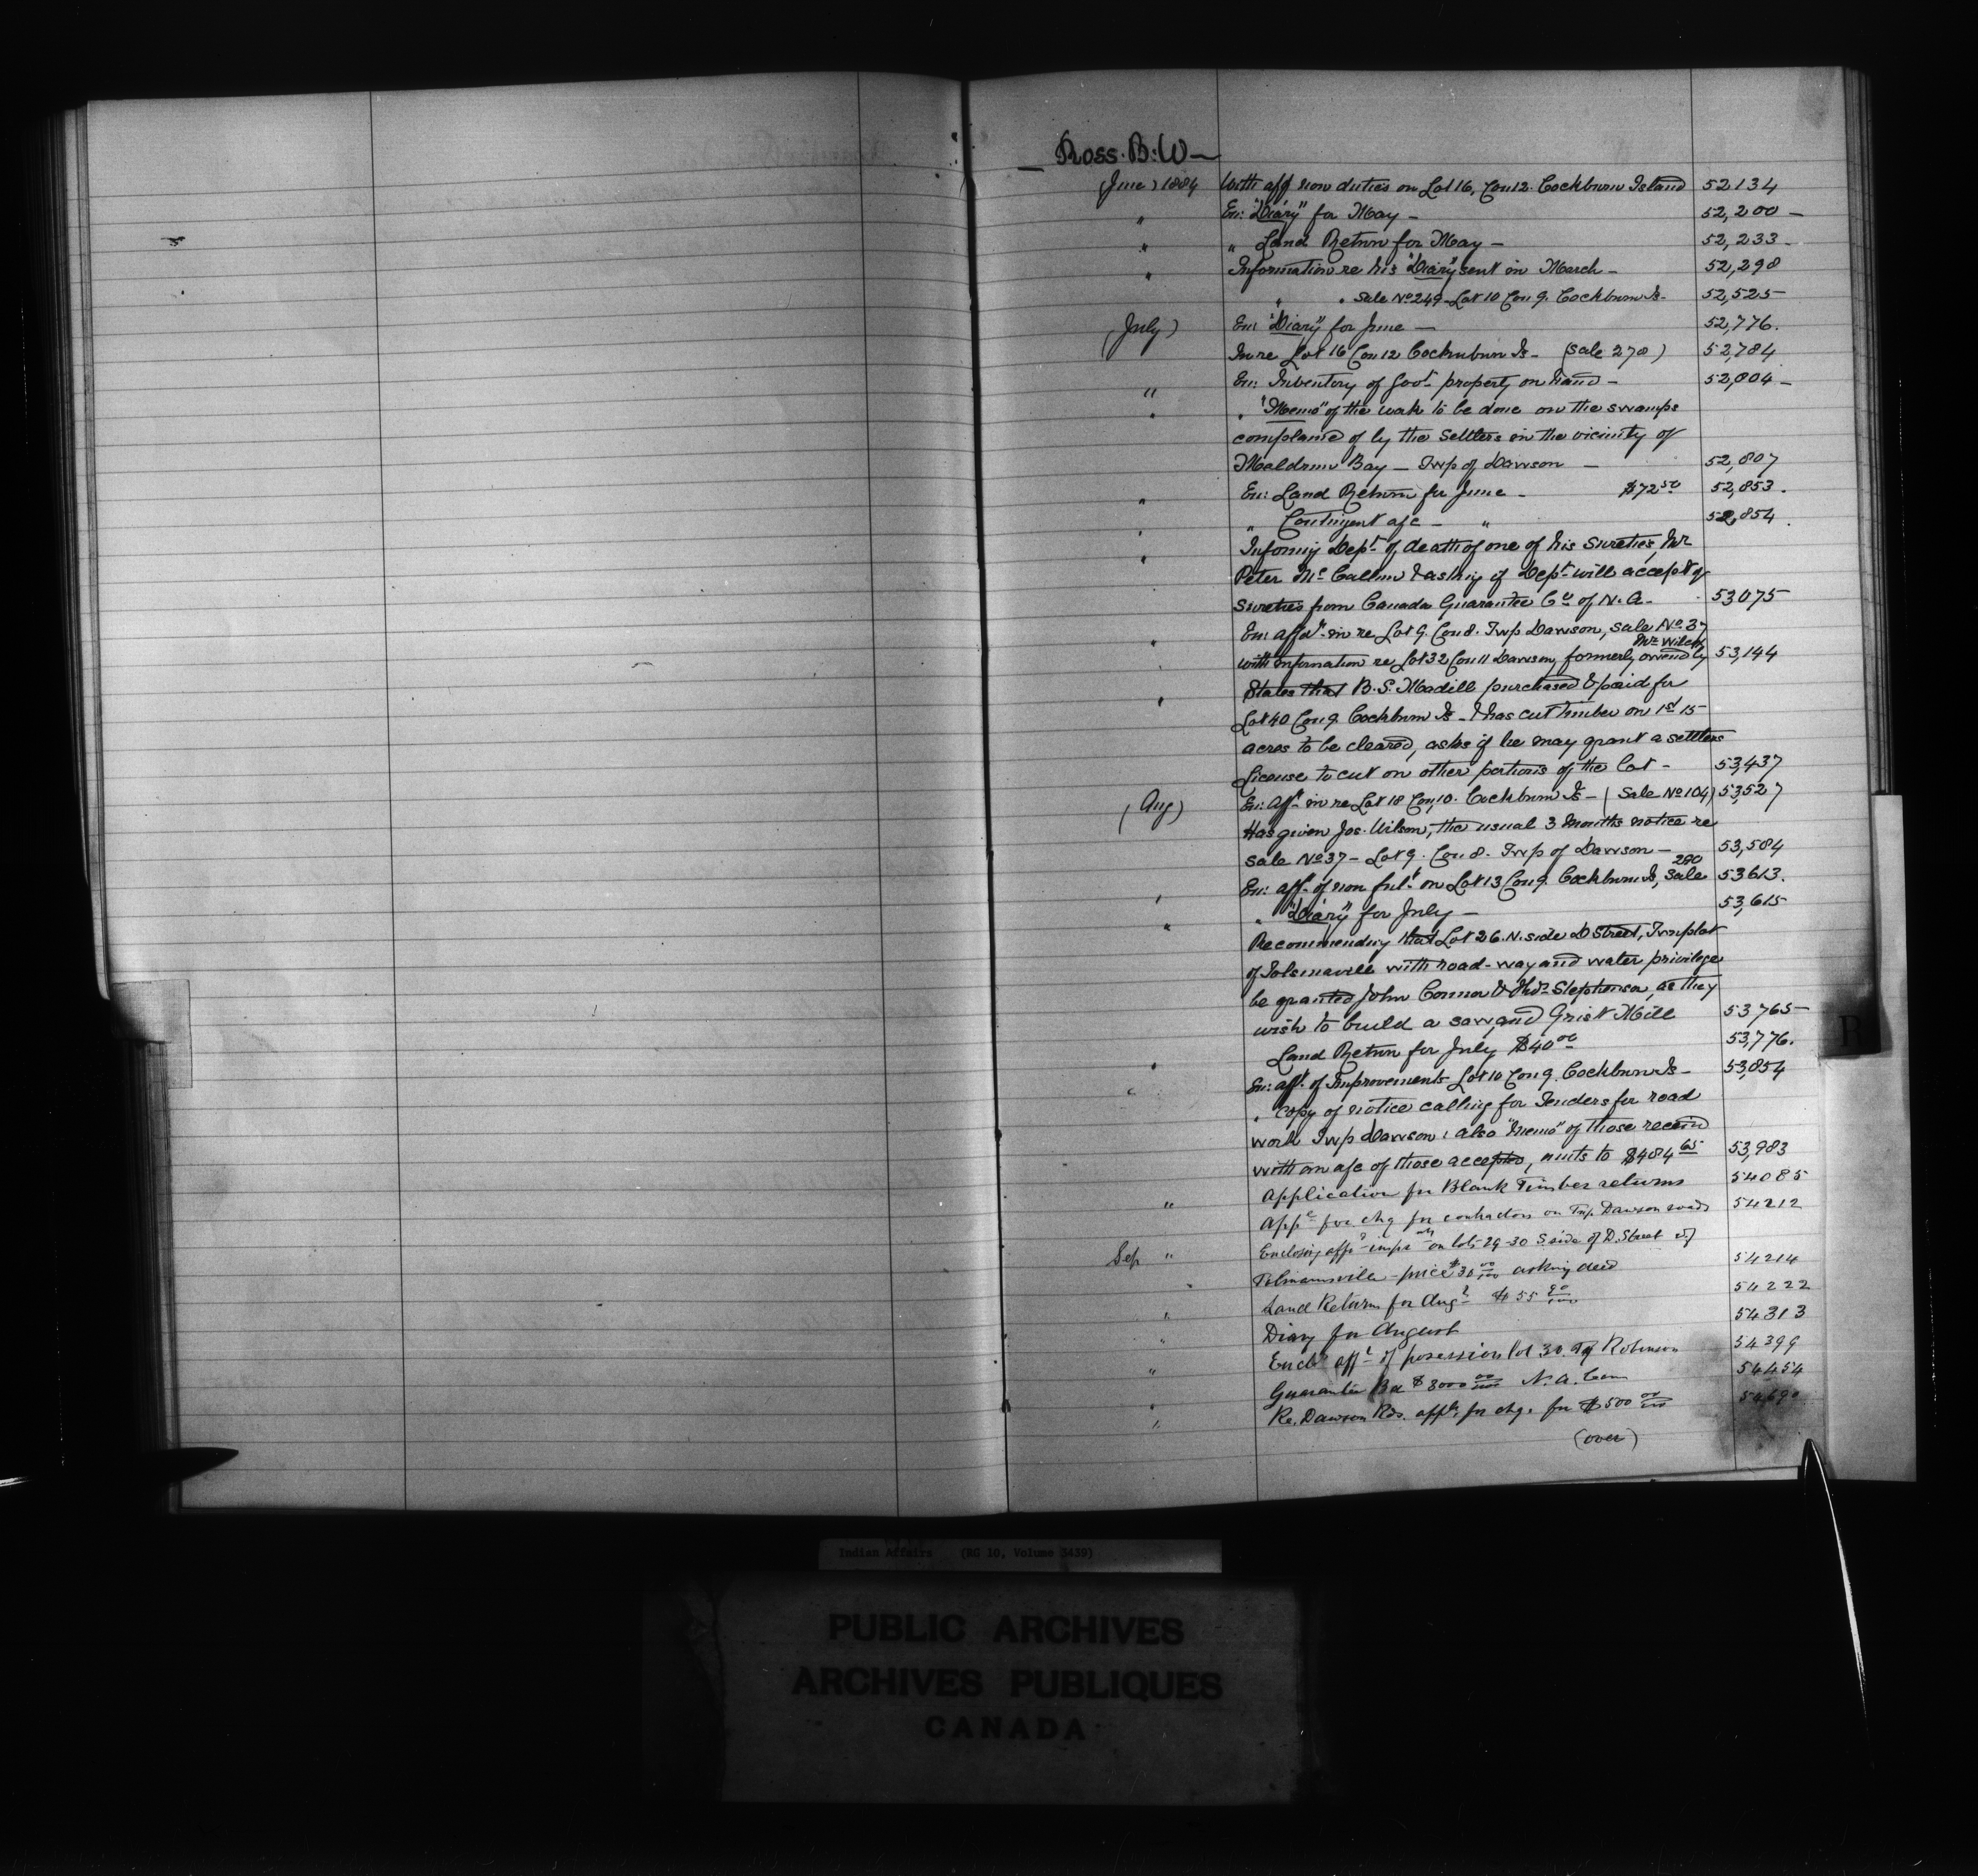 Ross. B: W —
(June) 1884 With aff non duties on Lot 16, Con 12. Cockburn Island 52134
" En: "Diary" for May — 52,200 —
" " Land Return for May — 52,233 —
" Information re his "Diary" sent in March — 52,298
" " Sale No 249 — Lot 10 Con 9. Cockburn Is — 52,525
(July) En: "Diary" for June — 52,776.
In re Lot 16 Con 12 Cockburn Is — (Sale 278) 52,784
" En: Inventory of Govt property on hand — 52,804 —
" " "Memo" of the work to be done on the swamps
complained of by the Settlers in the vicinity of
Meldrum Bay — Twp of Dawson — 52,807
" En: Land Return for June — $72 50 52,853.
" " Contingent a/c — " 52,854.
" Informing Dept of death of one of his Sureties, Mr
Peter Mc Callum & asking if Dept will accept of
Sureties from Canada Guarantee Co of N. A. — 53075
" En: affdt in re Lot 9. Con 8. Twp Dawson, Sale No 37
Mr Wilcox
with information re Lot 32 Con 11 Dawson, formerly owned by 53,144
" States that B. S. Madill purchased & paid for
Lot 40 Con 9. Cockburn Is — & has cut timber on 1st 15
acres to be cleared, asks if he may grant a settlers
License to cut on other portions of the Lot — 53,437
(Aug) En: afft in re Lot 18 Con, 10. Cockburn Is — (Sale No 104) 53,527
Has given Jos. Wilson, the usual 3 months notice re
Sale No 37 — Lot 9. Con 8. Twp of Dawson — 53,584
280
" En: afft of non ful't on Lot 13 Con 9. Cockburn Is, Sale 53613.
" " "Diary" for July — 53,615
Recommending that Lot 26. N. side D Street, Townplot
of Tolsmaville with road-way and water privilege
be granted John Connor & Thos Stephenson, as they
wish to build a saw, and Grist Mill 53765 —
" Land Return for July $40 00 53,776.
" En: afft. of Improvements Lot 10 Con 9. Cockburn Is — 53,854
" Copy of notice calling for Tenders for road
work Twp Dawson: also "memo" of those received
with an a/c of those accepted, amts to $484 65 53,983
" Application for Blank Timber returns 54085
Appe for chq for contractors on Twp. Dawson roads 54212
Sep " Enclosing afft impts on lots 29-30 S. side of D. Street of
Tolsmaville — price $30 00/100 asking deed 54214
" Land Return for Augt $55 90/100 54222
" Diary for August 54313
" Encl. afft of possession lot 30. Tp Robinson 54399
" Guarantee Bd $8000 00/100 N. A. Com 54454
" Re. Dawson Rds. appl. for chq. for $500 00/100
(over)
R
Indian Affairs (RG 10, Volume 3439)
PUBLIC ARCHIVES
ARCHIVES PUBLIQUES
CANADA